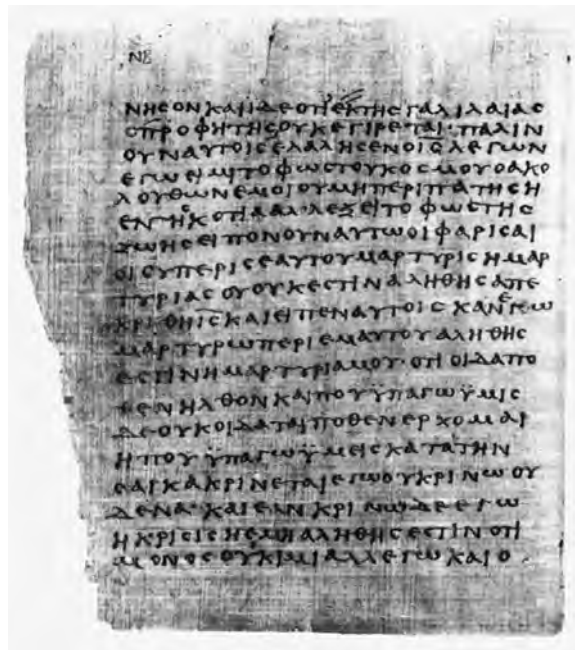 ΝΒ
ΝΗϹΟΝΚΑΙΙΔΕΟΤΙΕΚΤΗϹΓΑΛΙΛΑΙΑϹ
ΟΠΡΟΦΗΤΗϹΟΥΚΕΓΙΡΕΤΑΙ·ΠΑΛΙΝ
ΟΥΝΑΥΤΟΙϹΕΛΑΛΗϹΕΝΟΙ̅Ϲ̅ΛΕΓΩΝ
ΕΓΩΕΙΜΙΤΟΦΩϹΤΟΥΚΟϹΜΟΥΟΑΚΟ
ΛΟΥΘΩΝΕΜΟΙΟΥΜΗΠΕΡΙΠΑΤΗϹΗ
ΕΝΤΗϹΚΟΤΙΑΑΛ·ΛΕΞΕΙΤΟΦΩϹΤΗϹ
ΖΩΗϹΕΙΠΟΝΟΥΝΑΥΤΩΟΙΦΑΡΙϹΑΙ
ΟΙϹΥΠΕΡΙϹΕΑΥΤΟΥΜΑΡΤΥΡΙϹΗΜΑΡ
ΤΥΡΙΑϹΟΥΟΥΚΕϹΤΙΝΑΛΗΘΗϹΑΠΕ
ΚΡΙΘΗΙ̅Ϲ̅ΚΑΙΕΙΠΕΝΑΥΤΟΙϹΚΑΝΕΓΩ
ΜΑΡΤΥΡΩΠΕΡΙΕΜΑΥΤΟΥΑΛΗΘΗϹ
ΕϹΤΙΝΗΜΑΡΤΥΡΙΑΜΟΥ·ΟΤΙΟΙΔΑΠΟ
ΘΕΝΗΛΘΟΝΚΑΙΠΟΥΫΠΑΓΩΫΜΙϹ
ΔΕΟΥΚΟΙΔΑΤΑΙΠΟΘΕΝΕΡΧΟΜΑΙ
ΗΠΟΥΫΠΑΓΩΫΜΕΙϹΚΑΤΑΤΗΝ
ϹΑΡΚΑΚΡΙΝΕΤΑΙΕΓΩΟΥΚΡΙΝΩΟΥ
ΔΕΝΑ·ΚΑΙΕΑΝΚΡΙΝΩΔΕΕΓΩ
ΗΚΡΙϹΙϹΗΕΜΗΑΛΗΘΗϹΕϹΤΙΝΟΤΙ
ΜΟΝΟϹΟΥΚΙΜΙΑΛΛΕΓΩΚΑΙΟ